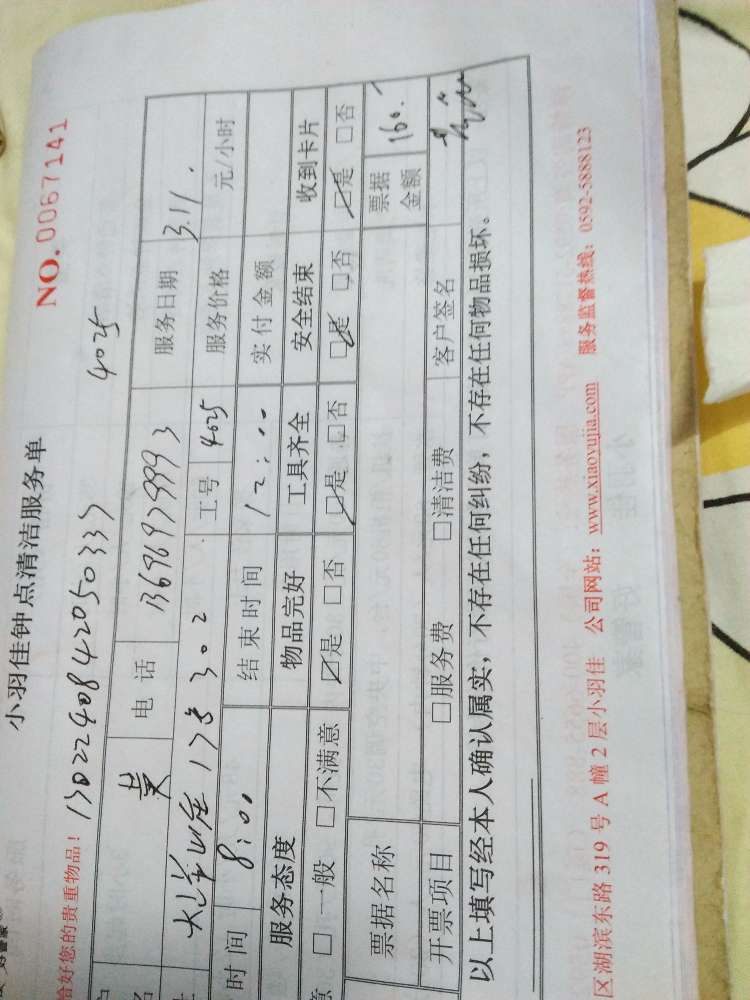 小羽佳钟点清洁服务单
NO. 0067141
您的贵重物品！ 4025
黄 电话 服务日期 3.11.
302 工号 4025 服务价格 元/小时
时间 8:00 结束时间 12:00 实付金额
服务态度 物品完好 工具齐全 安全结束 收到卡片
□一般 □不满意 ☑是 □否 ☑是 □否 ☑是 □否 ☑是 □否
票据名称 票据金额 160.
开票项目 □服务费 □清洁费 客户签名
以上填写经本人确认属实，不存在任何纠纷，不存在任何物品损坏。
区湖滨东路 319 号 A 幢 2 层小羽佳 公司网站：www.xiaoyujia.com 服务监督热线：0592-5888123